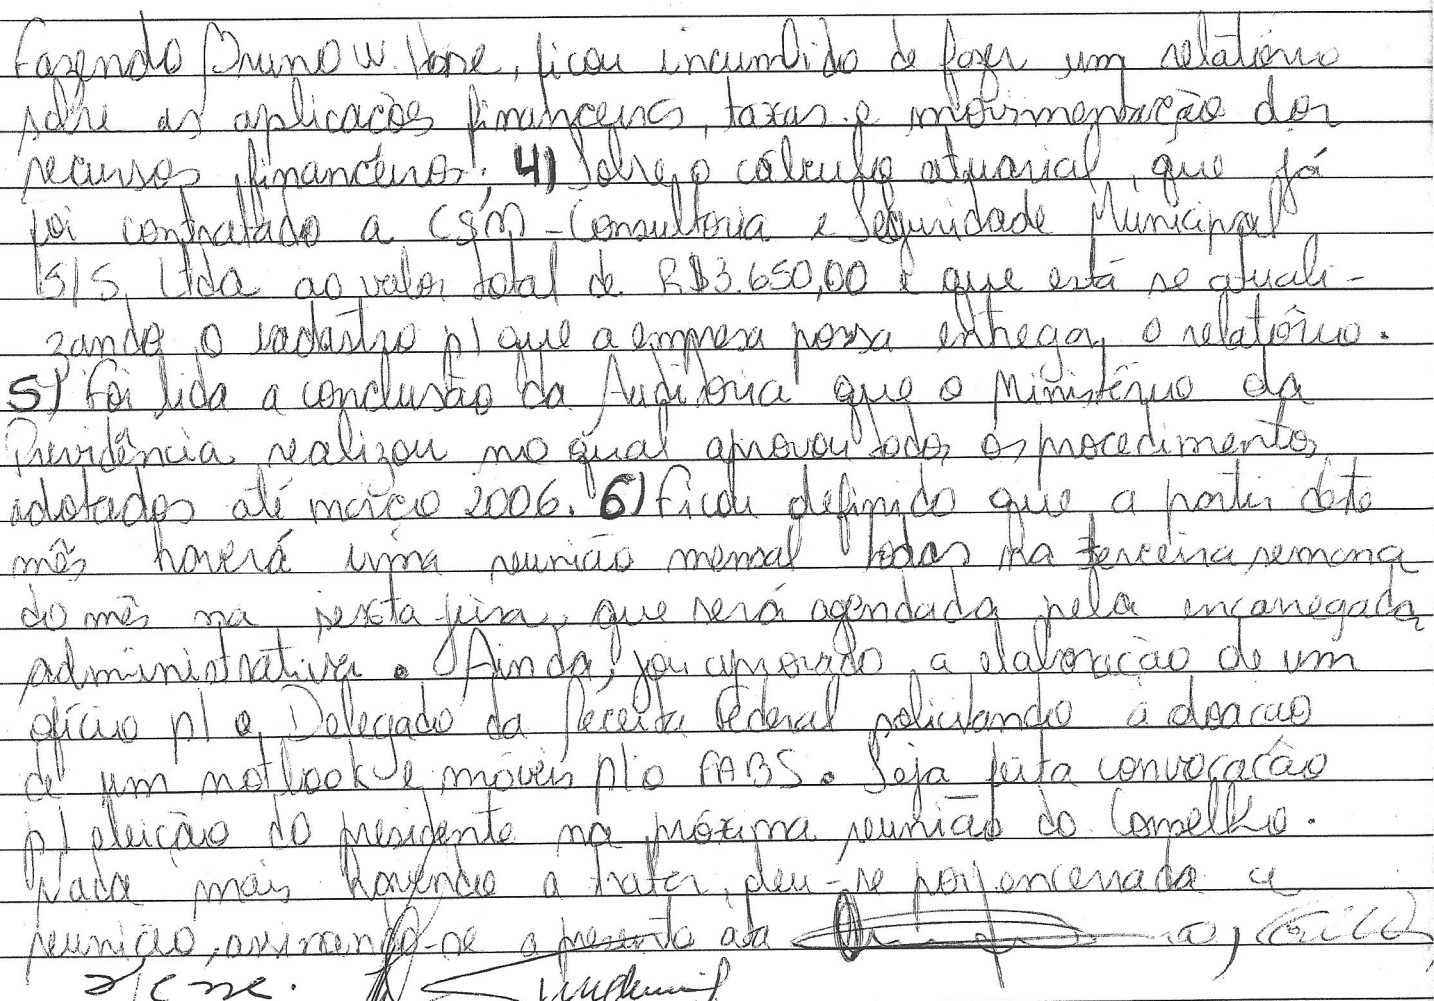 Fazenda Bruno W. , ficou incumbido de fazer um relatório
sobre as aplicações financeiras, taxas e movimentação dos
recursos financeiros; 4) Sobre o cálculo atuarial, que já
foi contratado a CSM - Consultoria e Seguridade Municipal
S/S Ltda ao valor total de R$3.650,00 e que está se atuali-
zando o cadastro p/ que a empresa possa entregar o relatório.
5) Foi lida a conclusão da Auditoria que o Ministério da
Previdência realizou no qual aprovou todos os procedimentos
adotados até março 2006. 6) Ficou definido que a partir deste
mês haverá uma reunião mensal todas na terceira semana
do mês na sexta feira, que será agendada pela encarregada
administrativa. Ainda, foi aprovado a elaboração de um
ofício p/ o Delegado da Receita Federal solicitando a doação
de um notbook e móveis p/ o FABS. Seja feita convocação
p/ eleição do presidente na próxima reunião do Conselho.
Nada mais havendo a tratar, deu-se por encerrada a
reunião, assinando-se a presente ata